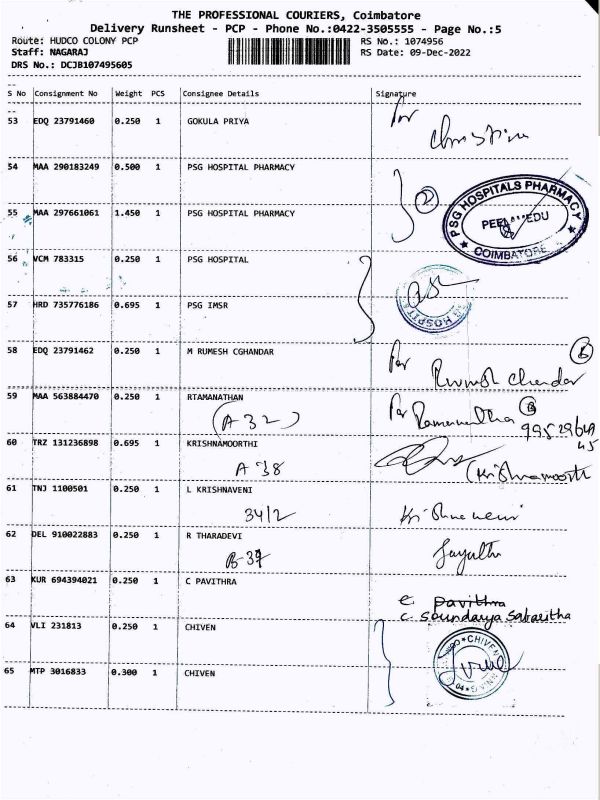 THE PROFESSIONAL COURIERS, Coimbatore
Delivery Runsheet - PCP - Phone No.:0422-3505555 - Page No.:5
Route: HUDCO COLONY PCP RS No.: 1074956
Staff: NAGARAJ RS Date: 09-Dec-2022
DRS No.: DCJB107495605
S No Consignment No Weight PCS Consignee Details Signature
53 EDQ 23791460 0.250 1 GOKULA PRIYA
for
54 MAA 290183249 0.500 1 PSG HOSPITAL PHARMACY
2
PSG HOSPITALS PHARMACY
COIMBATORE
55 MAA 297661061 1.450 1 PSG HOSPITAL PHARMACY
56 VCM 783315 0.250 1 PSG HOSPITAL
57 HRD 735776186 0.695 1 PSG IMSR
58 EDQ 23791462 0.250 1 M RUMESH CGHANDAR
59 MAA 563884470 0.250 1 RTAMANATHAN
(A 32)
60 TRZ 131236898 0.695 1 KRISHNAMOORTHI
A 38
61 TNJ 1100501 0.250 1 L KRISHNAVENI
34/2 Krishnaveni
62 DEL 910022883 0.250 1 R THARADEVI
B-37
63 KUR 694394021 0.250 1 C PAVITHRA
c. pavithra
c. Soundarya
64 VLI 231813 0.250 1 CHIVEN
CHIVEN
65 MTP 3016833 0.300 1 CHIVEN